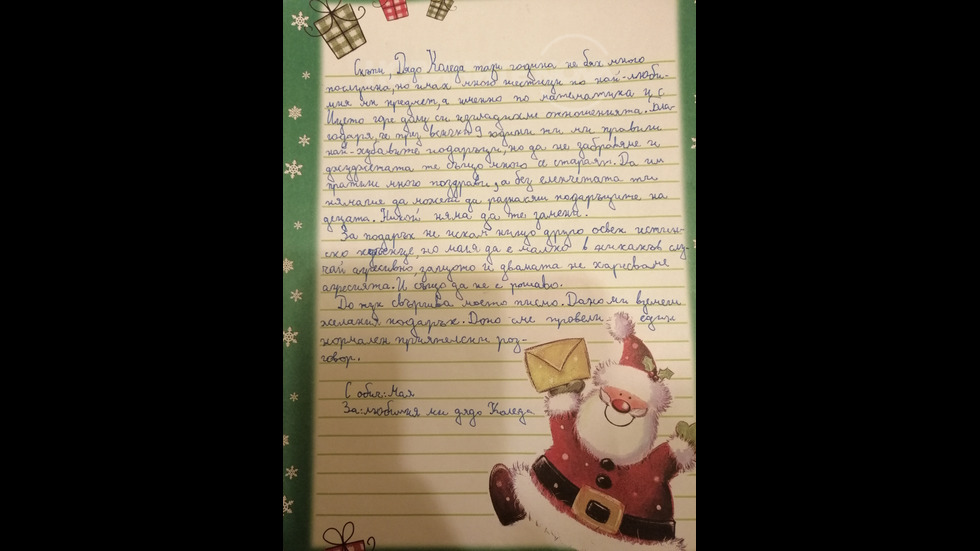 Скъпи, Дядо Коледа тази година не бях много
послушна, но имах много шестици по най-люби-
мия ми предмет, а именно по математика и с
Ицето горе долу си изгладихме отношенията. Бла-
годаря, че през всички 9 години ти ми правили
най-хубавите подаръци, но да не забравяме и
джуджетата те също много се старят. Да им
пратиш много поздрави, а без еленчетата ти
нямаше да можеш да разнасяш подаръците на
децата. Никой няма да те замени.
За подарък не искам нищо друго освен истин-
ско , но моля да е малко в никакъв слу-
чай агресивно, защото и двамата не харесваме
агресията. И също да не е рошаво.
До тук свършва моето писмо. Дано ми вземеш
желания подарък. Дано сме провели един
нормален приятелски раз-
говор.
С обич: Мая
За: любимия ми дядо Коледа